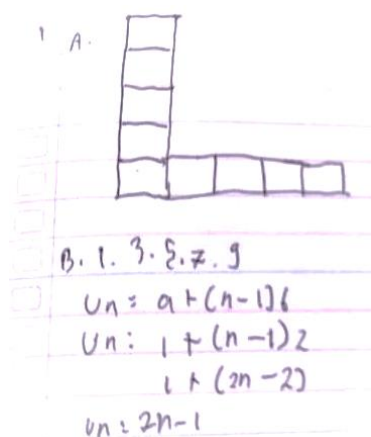 1 A.
B. 1. 3. 5. 7. 9
Un = a + (n-1) b
Un : 1 + (n-1) 2
1 + (2n-2)
Un = 2n-1